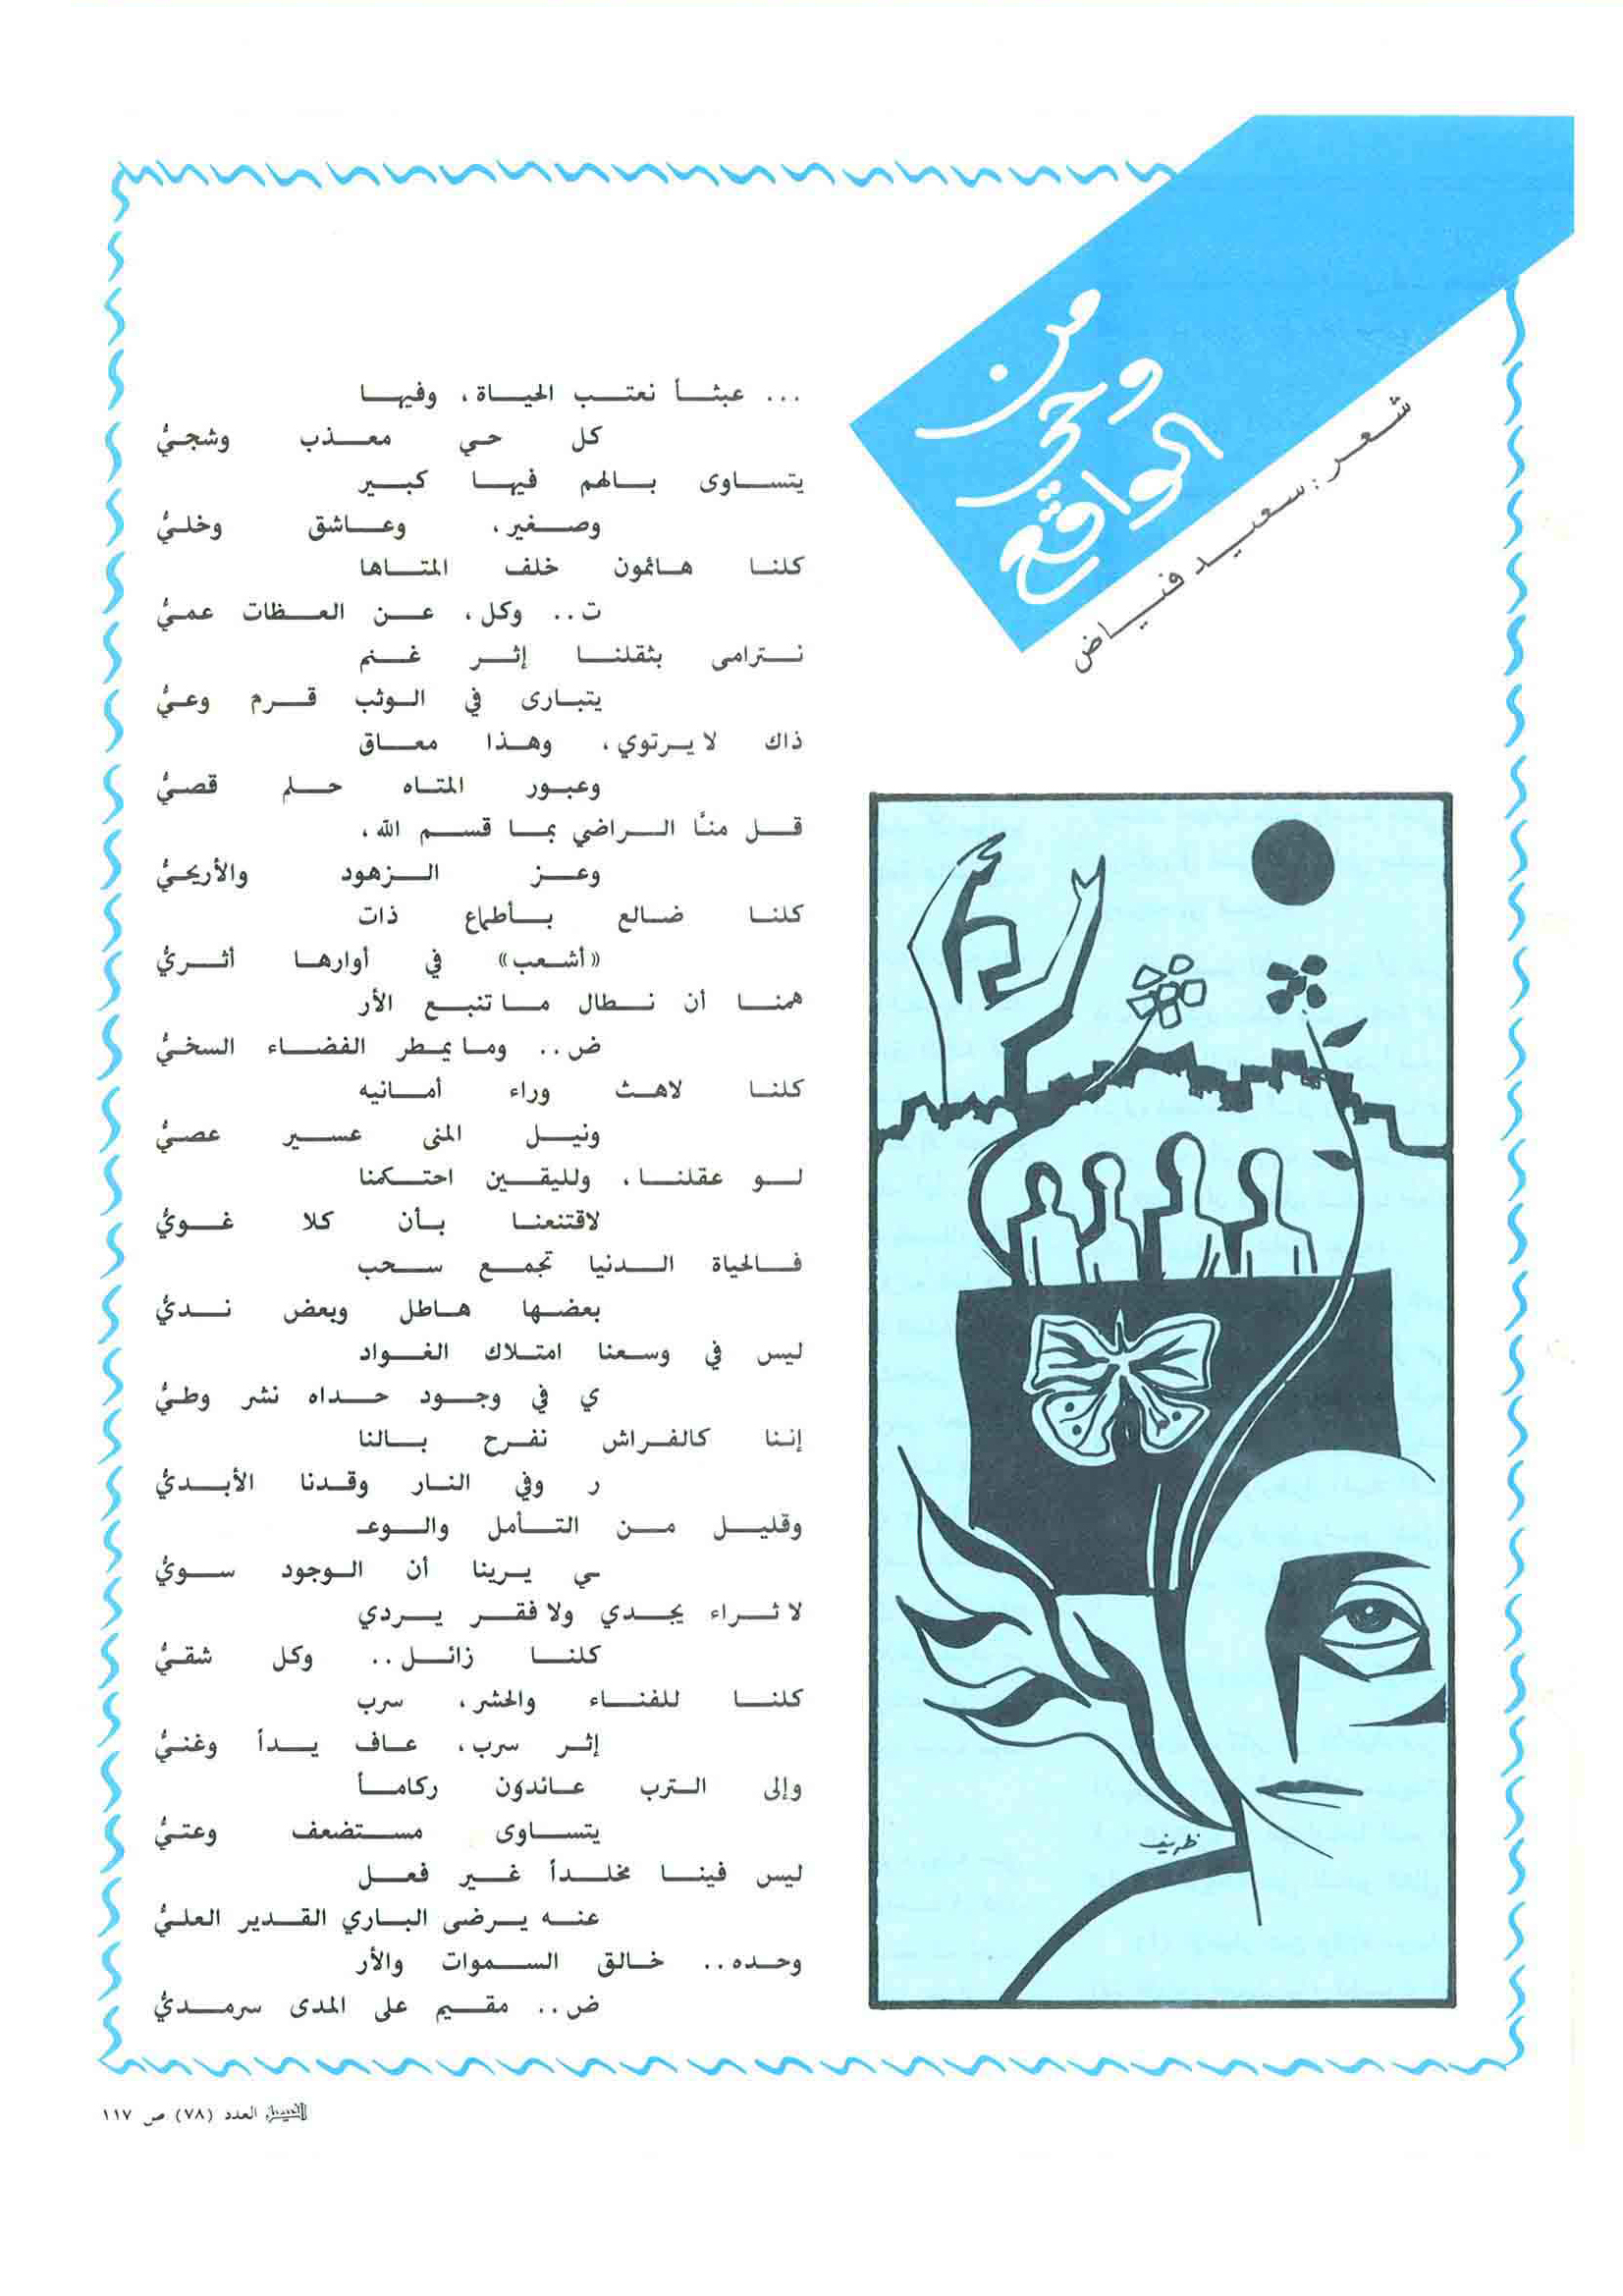 من
وحي
الواقع
شعر: سعيد فياض
... عبثاً نعتب الحياة، وفيها
كل حي معذب وشجيُّ
يتساوى بالهم فيها كبير
وصغير، وعاشق وخليُّ
كلنا هائمون خلف المتاها
ت.. وكل، عن العظات عميُّ
نترامى بثقلنا إثر غنم
يتبارى في الوثب قرم وعيُّ
ذاك لا يرتوي، وهذا معاق
وعبور المتاه حلم قصيُّ
قل منَّا الراضي بما قسم الله،
وعز الزهود والأريحيُّ
كلنا ضالع بأطماع ذات
«أشعب» في أوارها أثريُّ
همنا أن نطال ما تنبع الأر
ض.. وما يمطر الفضاء السخيُّ
كلنا لاهث وراء أمانيه
ونيل المنى عسير عصيُّ
لو عقلنا، ولليقين احتكمنا
لاقتنعنا بأن كلا غويُّ
فالحياة الدنيا تجمع سحب
بعضها هاطل وبعض نديُّ
ليس في وسعنا امتلاك الغواد
ي في وجود حداه نشر وطيُّ
إننا كالفراش نفرح بالنا
ر وفي النار وقدنا الأبديُّ
وقليل من التأمل والوعـ
ـي يرينا أن الوجود سويُّ
لا ثراء يجدي ولا فقر يردي
كلنا زائل.. وكل شقيُّ
كلنا للفناء والحشر، سرب
إثر سرب، عاف يداً وغنيُّ
وإلى الترب عائدون ركاماً
يتساوى مستضعف وعتيُّ
ليس فينا مخلداً غير فعل
عنه يرضى الباري القدير العليُّ
وحده.. خالق السموات والأر
ض.. مقيم على المدى سرمديُّ
ظريف
الفيصل العدد (٧٨) ص ١١٧